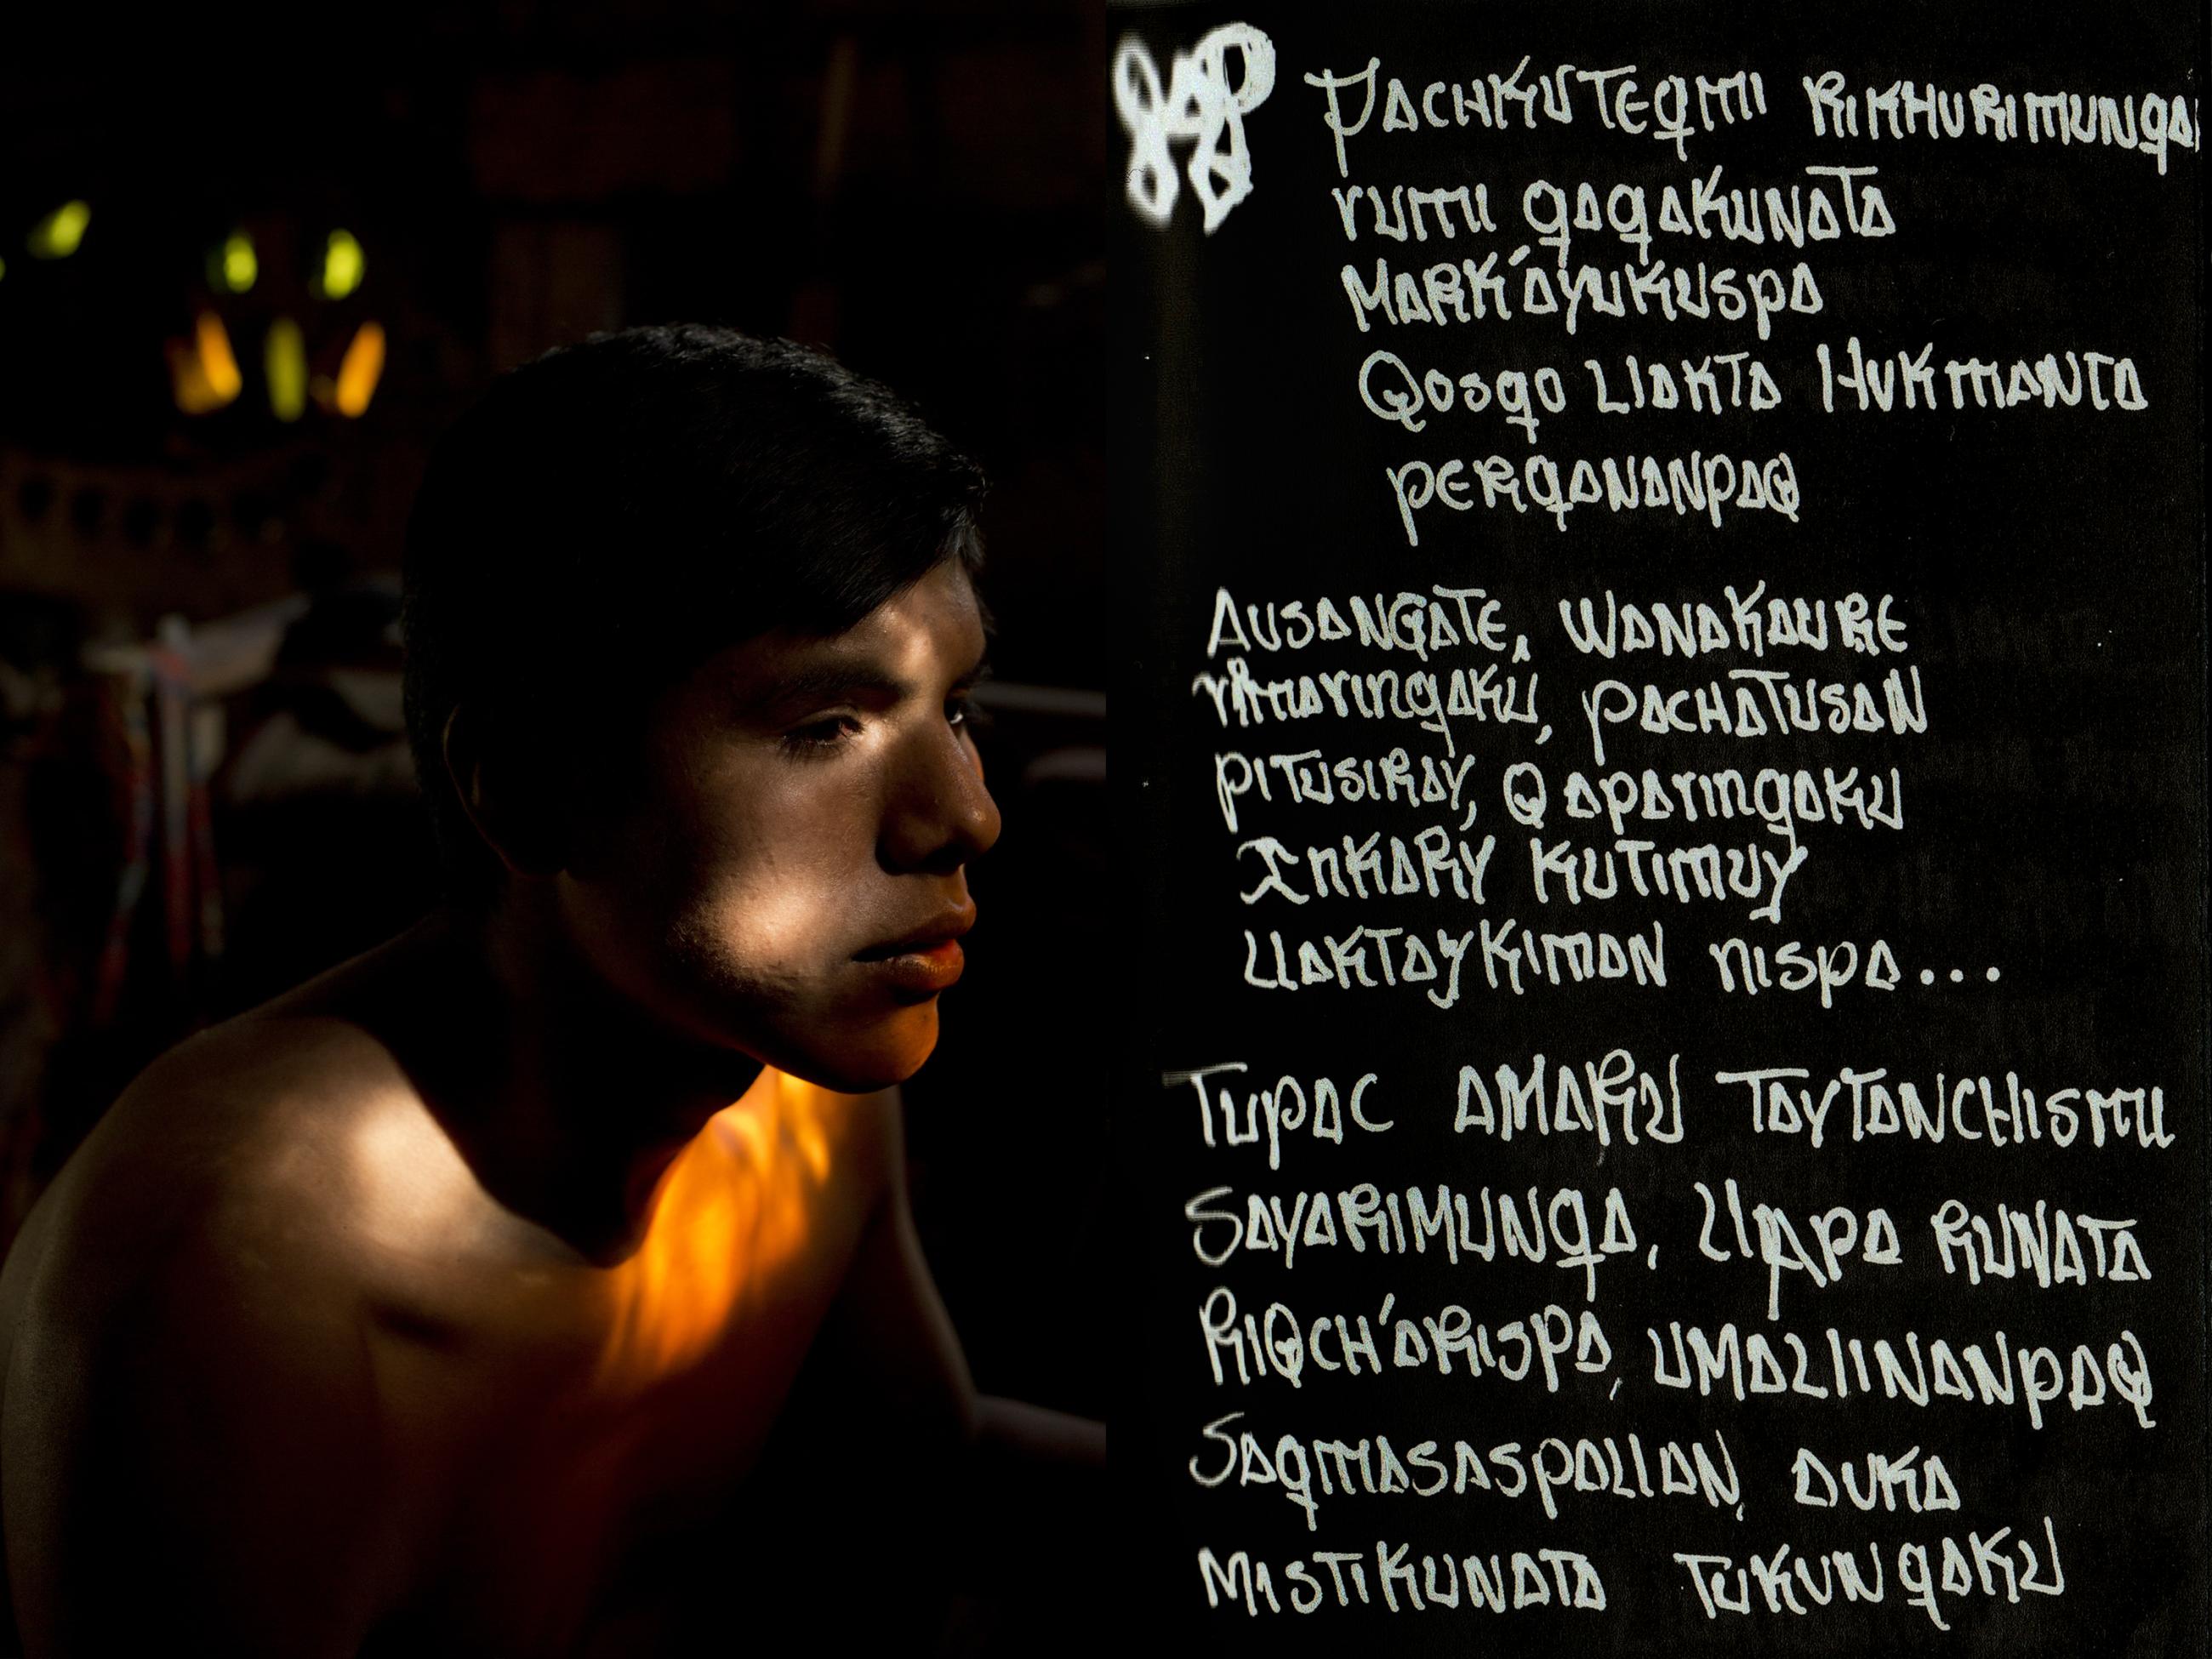 Pachkuteqmi rikhurimunqa
rumi qaqakunata
Mark'ayukuspa
Qosqo llakta Hukmanta
perqananpaq
Ausangate, Wanakaure
rimarinqaku, pachatusan
pitusiray, Qaparinqaku
Inkary kutimuy
llaktaykiman nispa...
Tupac amaru Taytanchismi
Sayarimunqa, llapa runata
Riqch'arispa, umallinanpaq
Saqmasaspallan, auka
Mistikunata tukunqaku